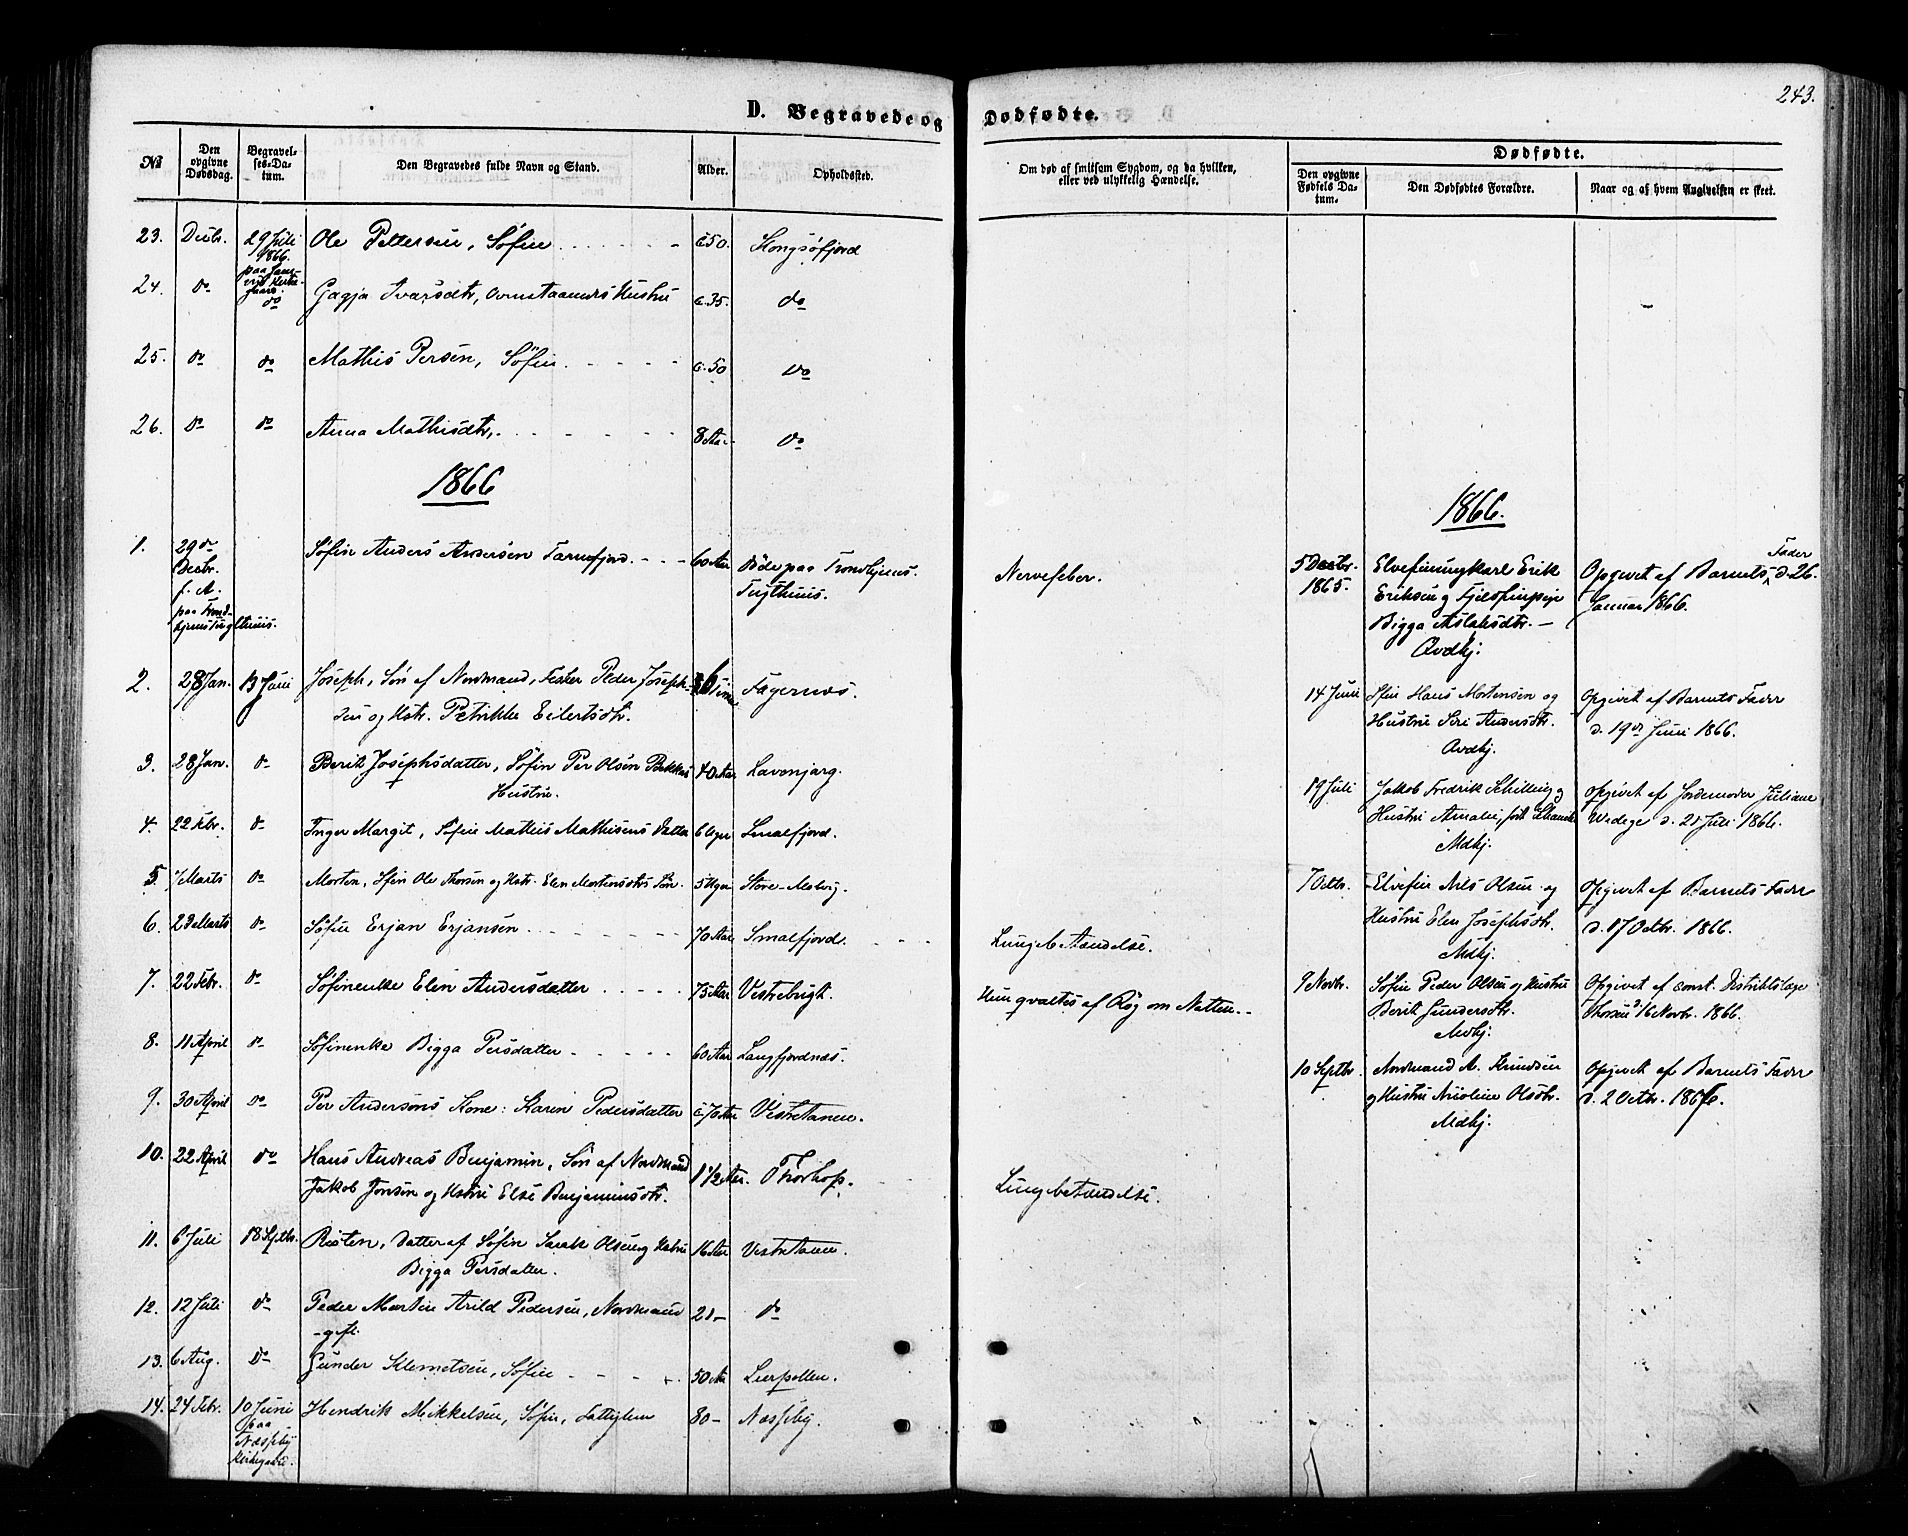 243.
D. Begravede og Dødfødte.
No
Den opgivne Dødsdag.
Begravelses-Datum.
Den Begravedes fulde Navn og Stand.
Alder.
Opholdssted.
Om død af smitsom Sygdom, og da hvilken, eller ved ulykkelig Hændelse.
Dødfødte.
Den opgivne Fødsels Datum.
Den Dødfødtes Forældre.
Naar og af hvem Angivelsen er skeet.
23. Decbr. 29 Juli 1866. paa Kirkegaard Ole Pettersen, Søfin c. 50. Kongsøfjord
24. do do Gagja Ivarsdtr, Hustru c. 35. do
25. do do Mathis Persen, Søfin. c. 50 do
26. do do Anna Mathisdtr. 8 Aar do
1866
1866.
1. 29de Decbr. f. A. paa Trondhjems Tugthuus. Søfin Anders Andersen Tarmfjord. 60 Aar Døde paa Trondhjems
Tugthuus. Nervefeber.
5 Decbr. 1865. Elvefinungkarl Erik
Eriksen og Fjeldfinpige
Bigga Aslaksdtr. –
Opgivet af Barnets Fader d. 26.
Januar 1866.
2. 28 Jan. 13 Juni Joseph, Søn af Nordmand, Fisker Peder Joseph-
sen og Hstr. Petrikke Eilertsdtr. 6 Fagernæs.
14 Juni Sfin Hans Mortensen og
Hustru Siri Andersdtr.
Opgivet af Barnets Fader
d. 19de Juni 1866.
3. 28 Jan. do Berit Josephsdatter, Søfin Per Olsen Bakkes
Hustru. 40 Aar Lavonjarg.
19 Juli Jakob Fredrik Schilling og
Hustru Amalie, født
Mdkj.
Opgivet af Jordemoder Juliane
Wedege d. 21 Juli 1866.
4. 22 Febr. do Inger Margit, Søfin Mathis Mathisens Datter 6 Uger Smalfjord.
5. 7 Marts do Morten, Sfin Ole Thorsen og Hstr. Elen Mortensdtrs Søn. 5 Uger Store-Molvig.
7 Octbr. Elvefin Nils Olsen og
Hustru Elen Josephsdtr.
Mdkj.
Opgivet af Barnets Fader
d. 17 Octbr. 1866.
6. 23 Marts do Søfin Erjan Erjansen 70 Aar Smalfjord. Lungebetændelse.
7. 22 Febr. do Søfinenke Elen Andersdatter 75 Aar Vestrebugt. Hun qvaltes af Røg om Natten.
9 Novbr. Søfin Peder Olsen og Hustru
Berit Gundersdtr.
Mdkj.
Opgivet af const. Distriktslæge
Thorsen d. 16 Novbr. 1866.
8. 11 April do Søfinenke Bigga Persdatter 60 Aar Langfjordnæs.
10 Septbr. Nordmand A. Knudsen
og Hustru Nicoline Olsdtr.
Mdkj.
Opgivet af Barnets Fader
d. 2 Octbr. 1866.
9. 30 April do Per Andersens Kone: Karen Pedersdatter c. 70 Aar Vestretanen.
10. 22 April do Hans Andreas Benjamin, Søn af Nordmand
Jakob Jonsen og Hstru Else Benjaminsdtr. 1 1/2 Aar. Thorhop. Lungebetændelse.
11. 6 Juli 18 Septbr. Risten, Datter af Søfin Sarak Olsen og Hstru
Bigga Persdatter. 16 Aar Vestretanen.
12. 12 Juli do Peder Martin Arild Pedersen, Nordmand
gift. 21 – do
13. 6 Aug. do Gunder Klemetsen, Søfin 50 Aar Leerpollen.
14. 24 Febr. 10 Juni paa Næsseby Kirkegaard. Hendrik Mikkelsen, Søfin, Fattiglem 80 – Næsseby.